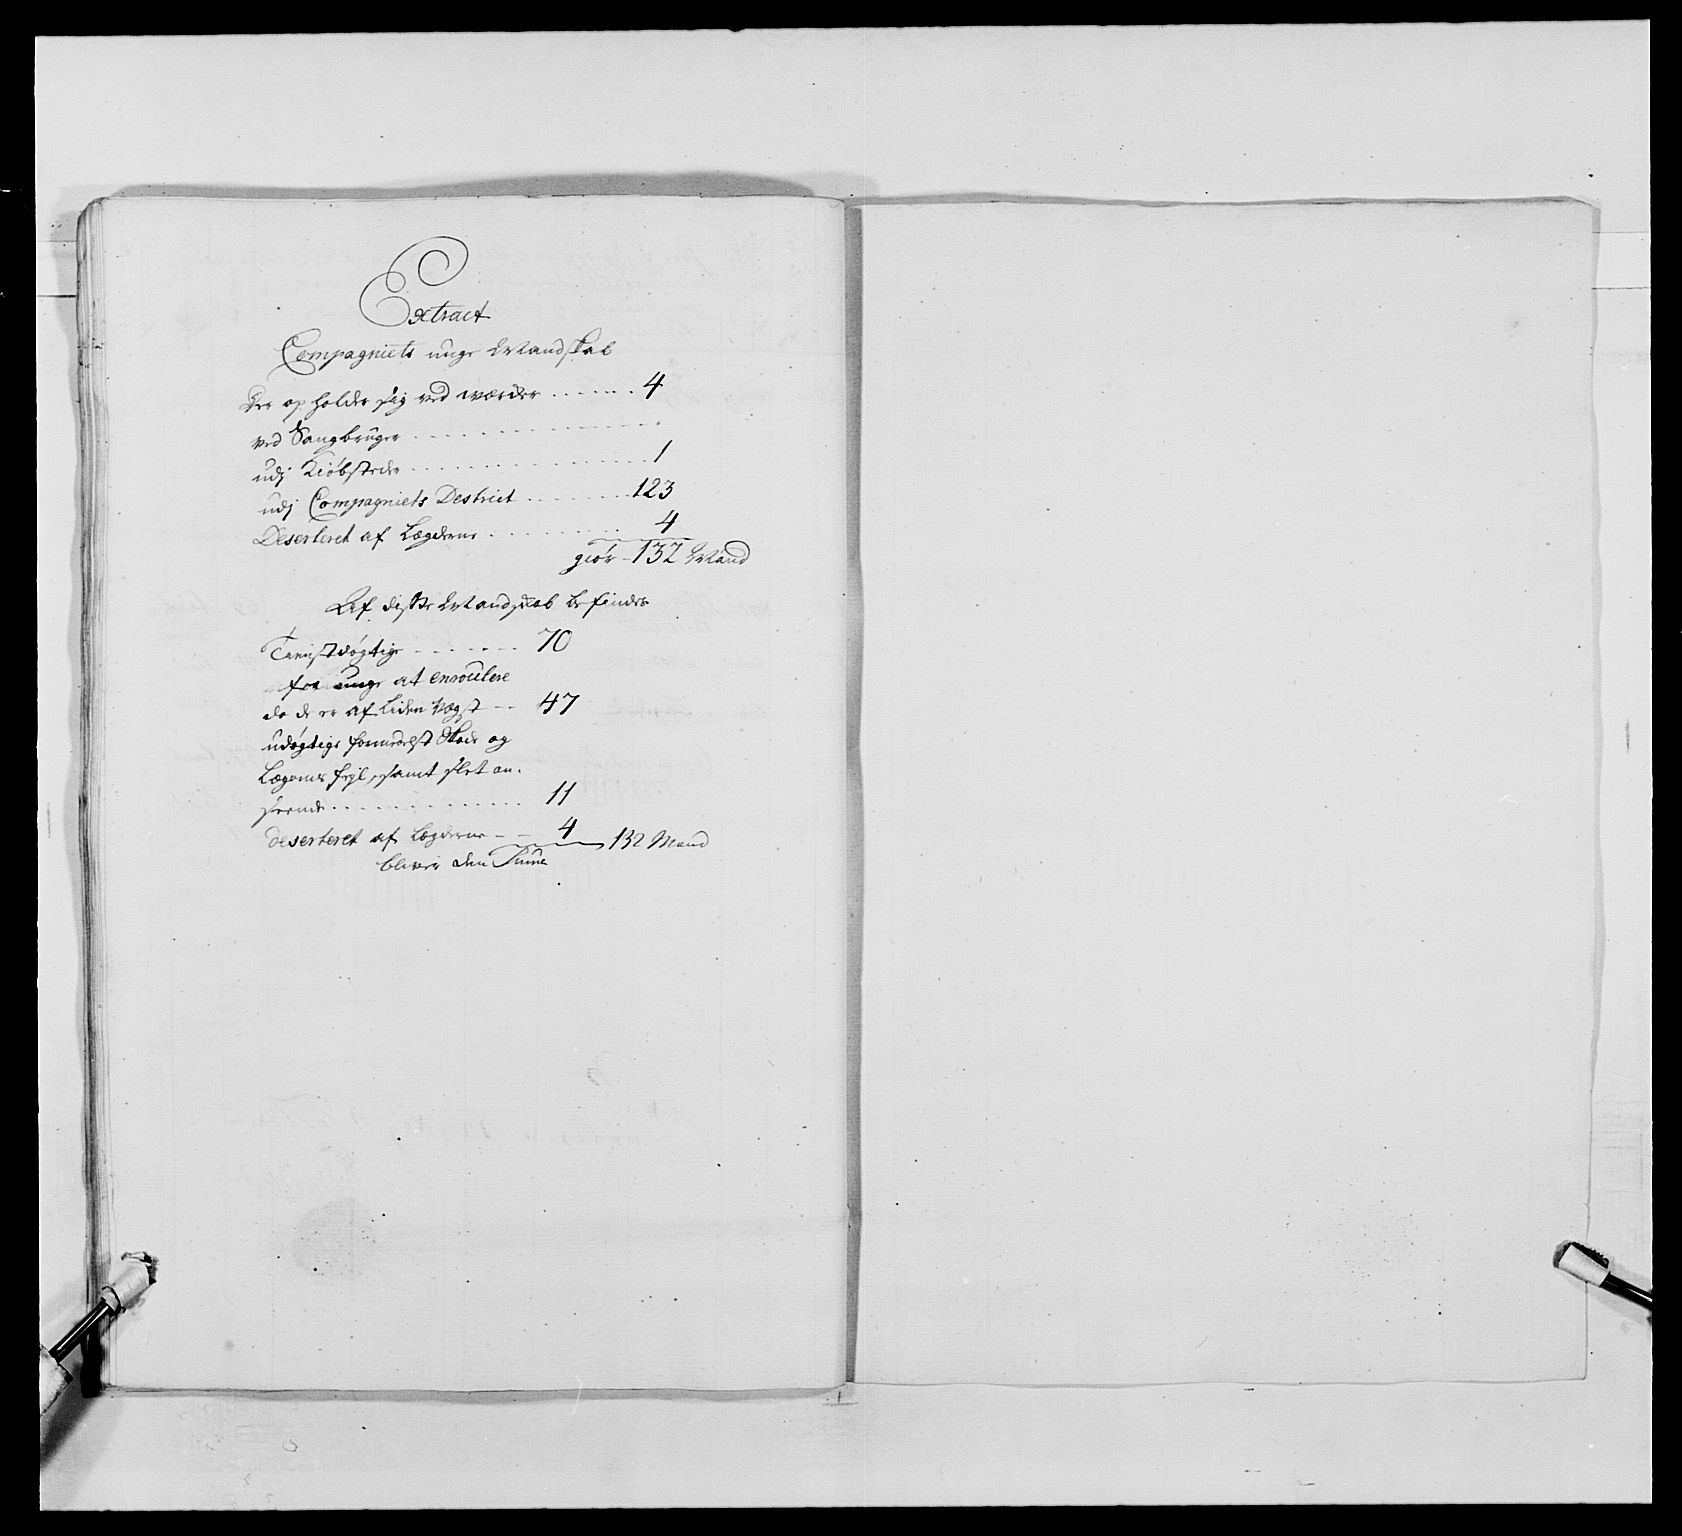 Extract
Compagniets unge Mandskab
Der opholder sig ved værcker ...... 4
ved Saugbruger .................
udj Kiöbsteder ................. 1
udj Compagniets Destrict ........ 123
Deserteret af Lægderne ........ 4
giör - 132 Mand
Af diste Mandskab befindes
Tienistdögtige ....... 70
for unge at enroulere
da de er af Liden Vægst -- 47
udögtige formedelst Skade og
Lægoms fejl, samt slet an-
seende ............. 11
deserteret af Lægderne -- 4 132 Mand
bliver den Summa